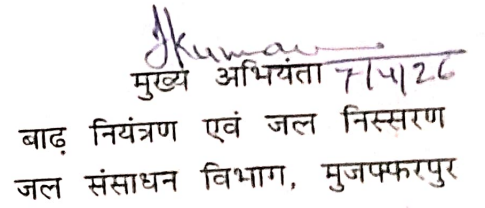 Jkumar
मुख्य अभियंता 7/4/26
बाढ़ नियंत्रण एवं जल निस्सरण
जल संसाधन विभाग, मुजफ्फरपुर